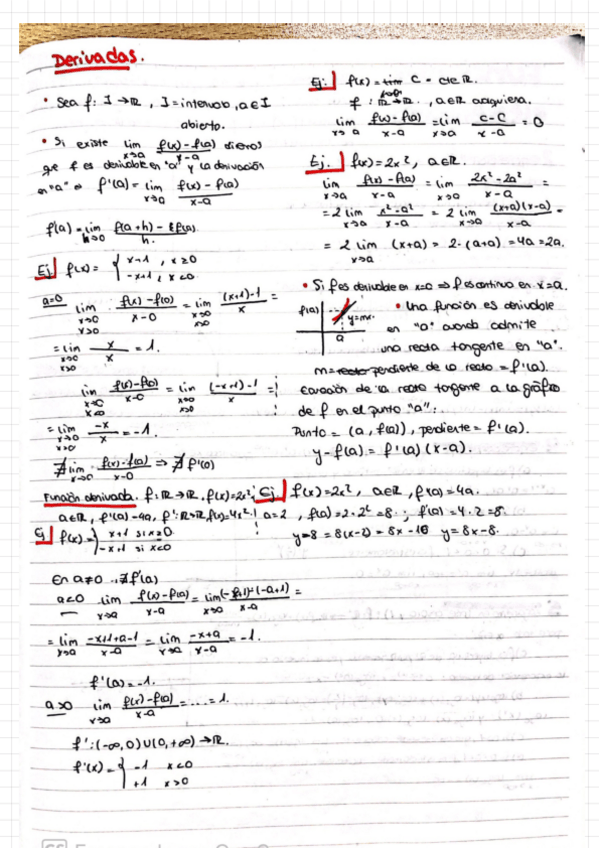 Derivadas.
• Sea f: I → R, I = intervalo, a ∈ I
abierto.
• Si existe lim x→a f(x) - f(a) / x-a diremos
que f es derivable en "a" y la derivación
en "a" es f'(a) = lim x→a f(x) - f(a) / x-a
f(a) = lim h→0 f(a+h) - f(a) / h.
Ej f(x) = { x+1, x≥0
-x+1, x<0
a=0 lim x→0 x>0 f(x) - f(0) / x-0 = lim x→0 x>0 (x+1)-1 / x =
= lim x→0 x>0 x / x = 1.
lim x→0 x<0 f(x) - f(0) / x-0 = lim x→0 (-x+1)-1 / x =
= lim x→0 -x / x = -1.
∄ lim x→0 f(x) - f(0) / x-0 ⇒ ∄ f'(0)
Ej. f(x) = C = cte R.
f: R→R, a∈R cualquiera.
lim x→a f(x) - f(a) / x-a = lim x→a C-C / x-a = 0
Ej. f(x) = 2x², a∈R.
lim x→a f(x) - f(a) / x-a = lim 2x² - 2a² / x-a =
= 2 lim x→a x² - a² / x-a = 2 lim x→a (x+a)(x-a) / x-a =
= 2 lim x→a (x+a) = 2·(a+a) = 4a = 2a.
• Si f es derivable en x=a ⇒ f es continua en x=a.
f(a) y=mx a
• Una función es derivable
en "a" cuando admite
una recta tangente en "a".
m= recta pendiente de la recta = f'(a).
Ecuación de la recta tangente a la gráfica
de f en el punto "a":
Punto = (a, f(a)), pendiente = f'(a).
y - f(a) = f'(a) (x-a).
Función derivada. f: R→R, f(x)=2x²,
a∈R, f'(a)=4a, f': R→R, f(x)=4x².
Ej f(x)=2x², a∈R, f'(a)=4a.
a=2, f(a)=2·2²=8.; f'(a)=4·2=8.
y-8=8(x-2)=8x-16 y=8x-8.
Ej f(x)= { x+1 si x≥0
-x+1 si x<0
En a≠0 ∄ f'(a)
a<0 lim x→a f(x) - f(a) / x-a = lim x→a (-x+1)-(-a+1) / x-a =
= lim x→a -x+1+a-1 / x-a = lim x→a -x+a / x-a = -1.
f'(a) = -1.
a>0 lim x→a f(x) - f(a) / x-a = ... = 1.
f': (-∞,0) ∪ (0,+∞) → R.
f'(x) = { -1 x<0
+1 x>0